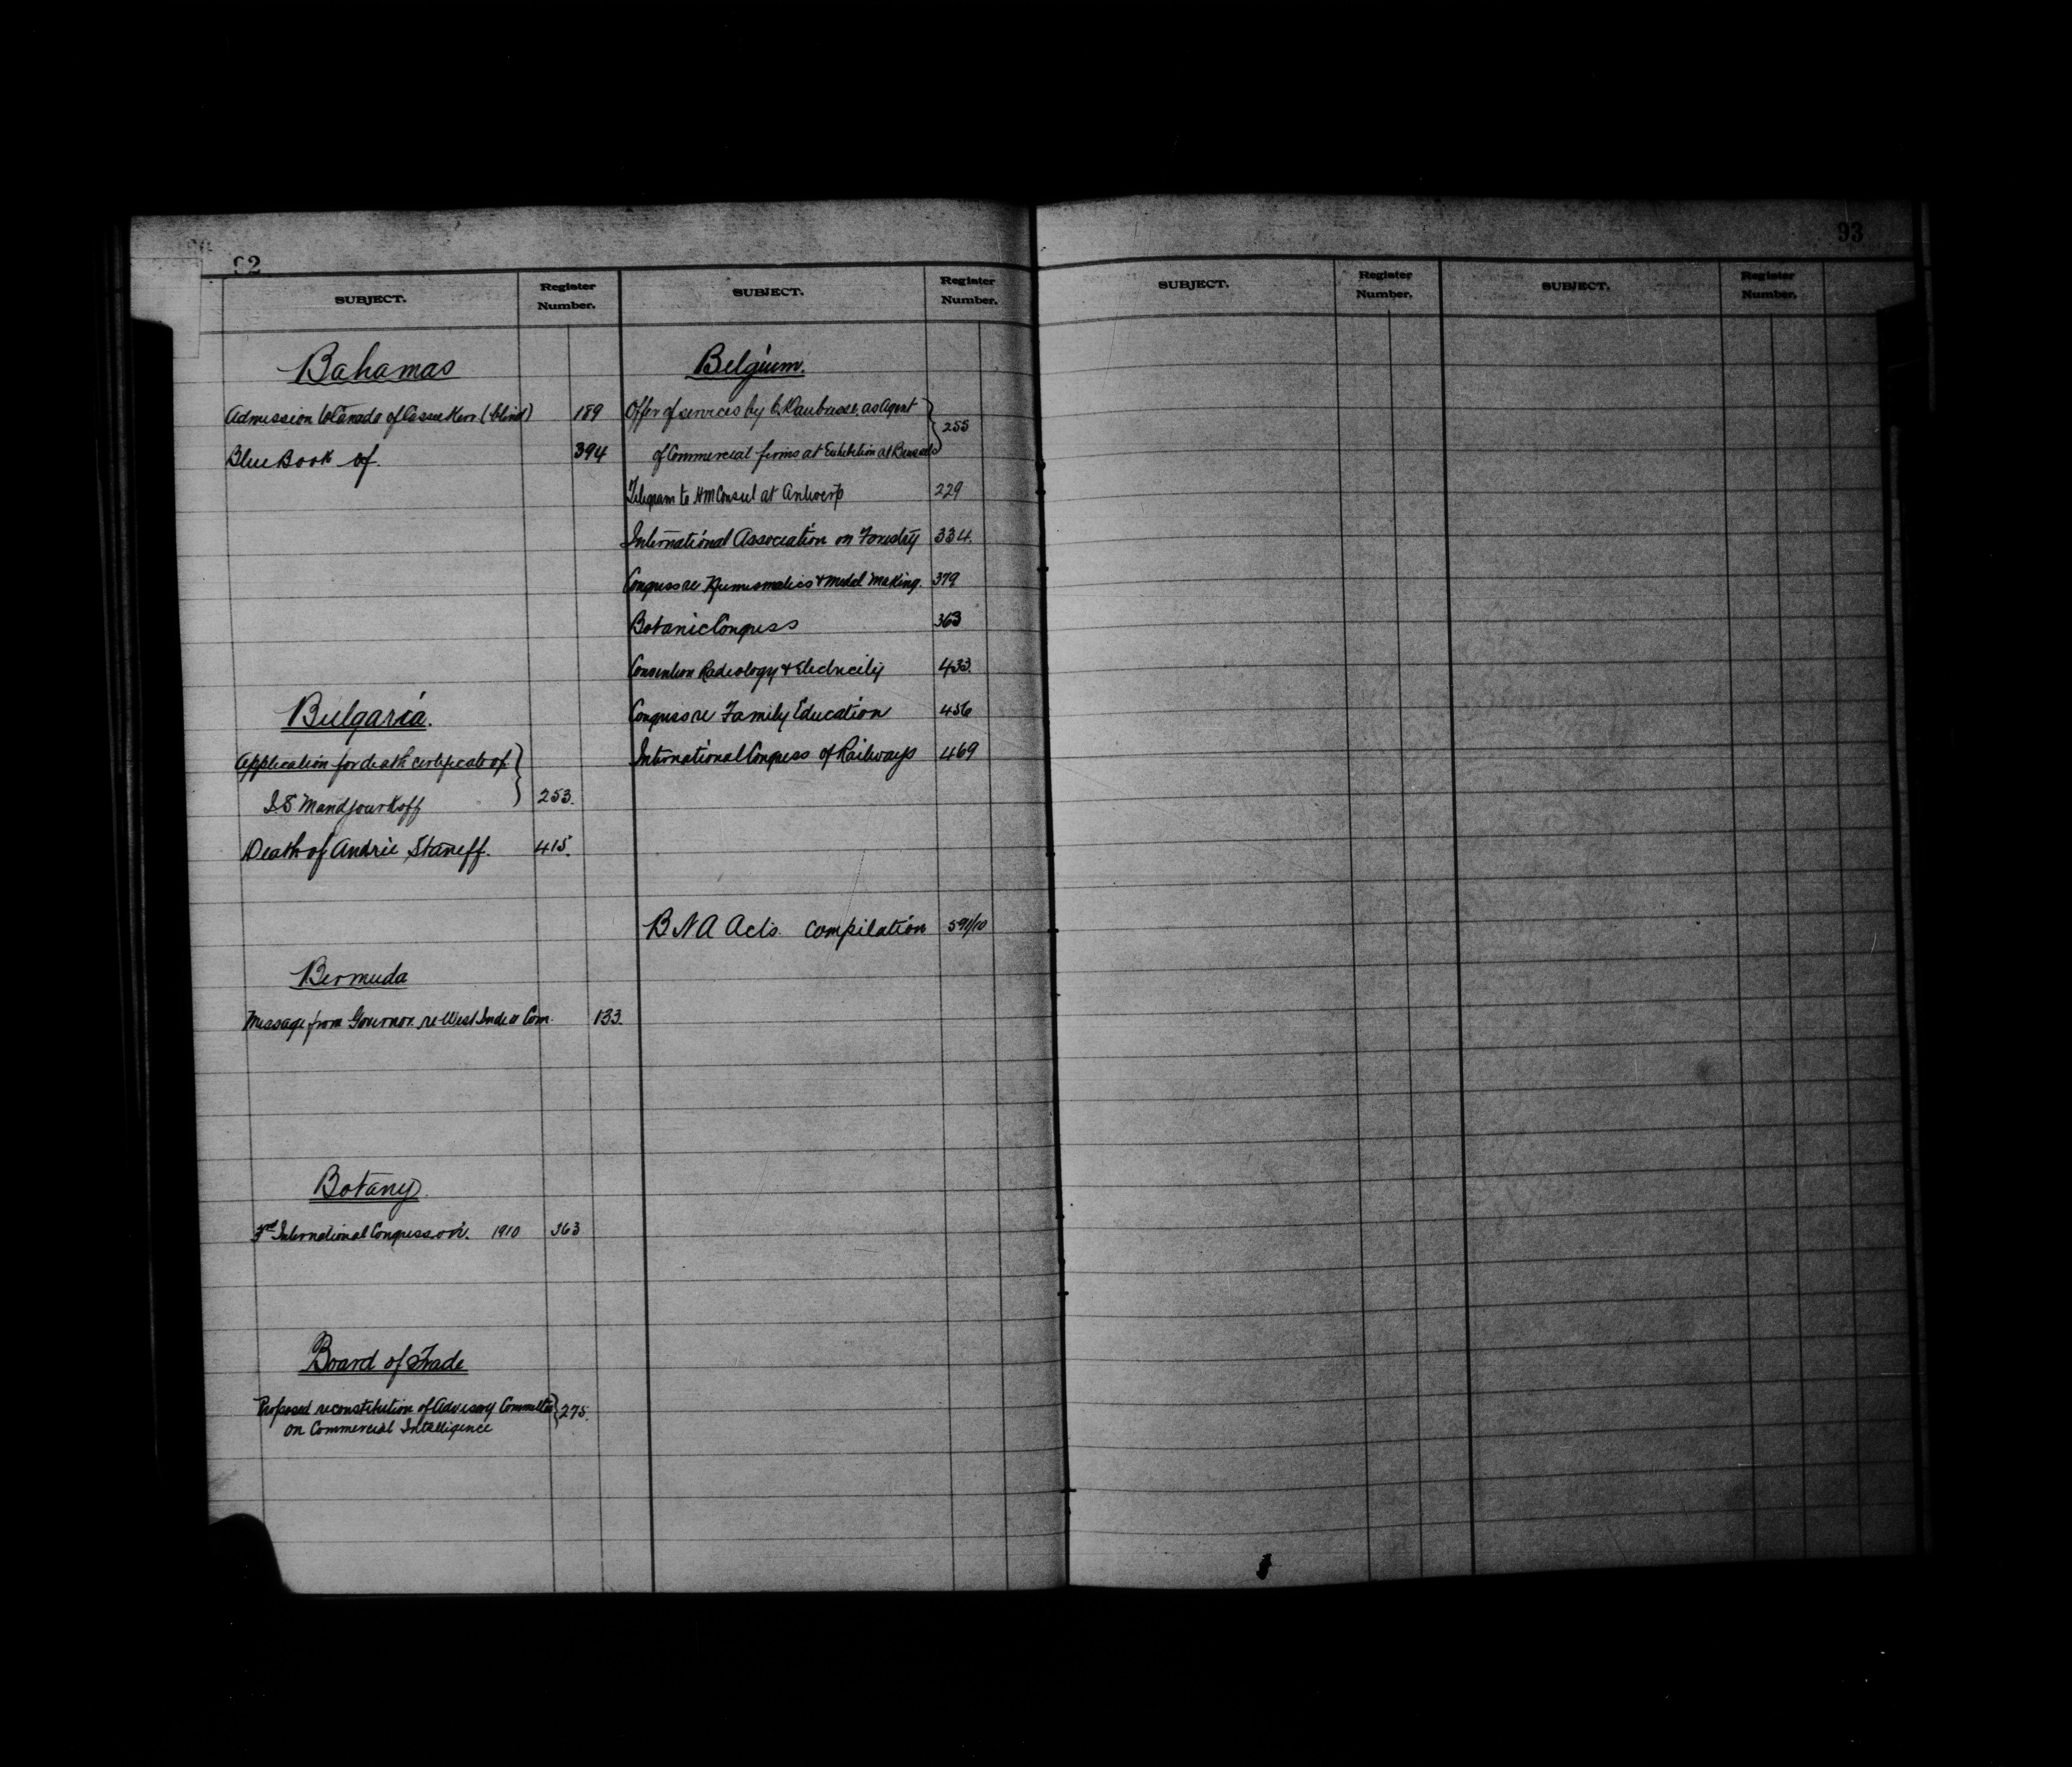 92
SUBJECT.
Register Number.
Bahamas
Admission to Canada of Kerr (blind) 189
Blue Book of. 394
Bulgaria.
Application for death certificate of
I.S Mandjourkoff 253.
Death of Andrie Staneff. 415.
Bermuda
Message from Governor re West Com. 133.
Botany
3rd International Congress on. 1910 363
Board of Trade
Proposed reconstitution of Advisory Committee
on Commercial Intelligence 275.
SUBJECT.
Register Number.
Belgium.
Offer of services by as Agent
of Commercial firms at Exhibition at Brussels 255
Telegram to HM Consul at Antwerp 229
International Association on Forestry 334.
Congress re Numismatics & Medal Making. 379
Botanic Congress 363
Convention Radiology & Electricity 433.
Congress re Family Education 456
International Congress of Railways 469
B N A Acts. Compilation 591/10
93
SUBJECT.
Register Number.
SUBJECT.
Register Number.